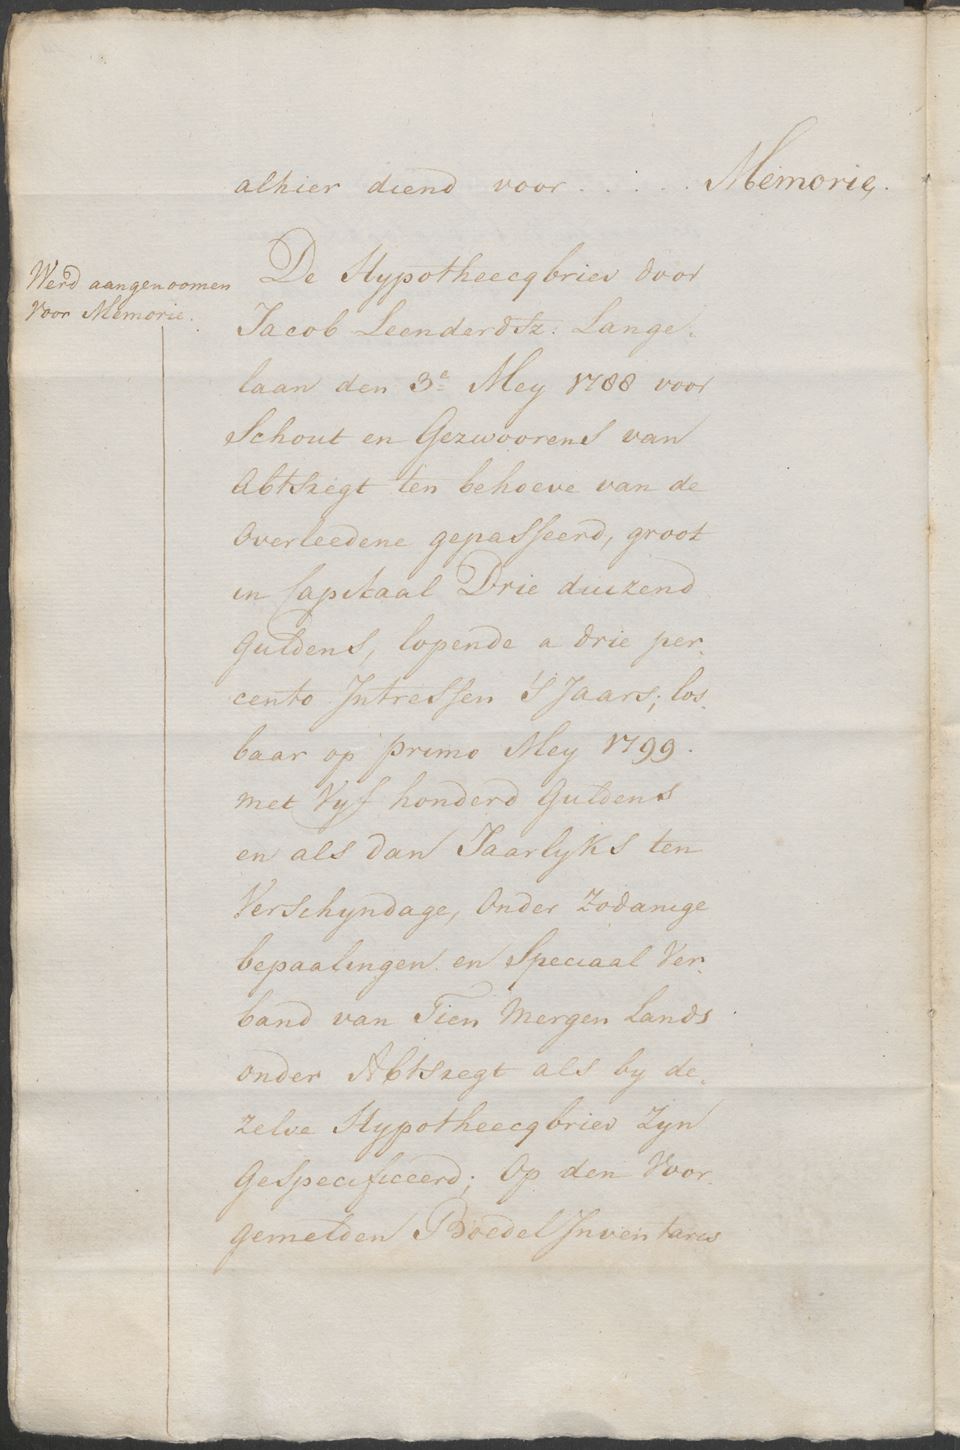 alhier diend voor . . . . . Memorie.
Werd aangenoomen
voor Memorie.
De Hypotheecqbriev door
Jacob Leenderdsz. Lange-
laan den 3e Mey 1788 voor
Schout en Gezwoorens van
Abtsregt ten behoeve van de
Overleedene gepasseerd, groot
in Capitaal Drie duizend
Guldens, lopende a drie per-
cento Intressen 's Jaars; los-
baar op primo Mey 1799.
met Vyf honderd Guldens
en als dan Jaarlyks ten
Verschyndage, Onder Zodanige
bepaalingen en Speciaal Ver-
band van Tien Mergen Lands
onder Abtsregt als by de-
zelve Hypotheecqbriev Zyn
Gespecificeerd; Op den Voor-
gemelden Boedel Inventaris